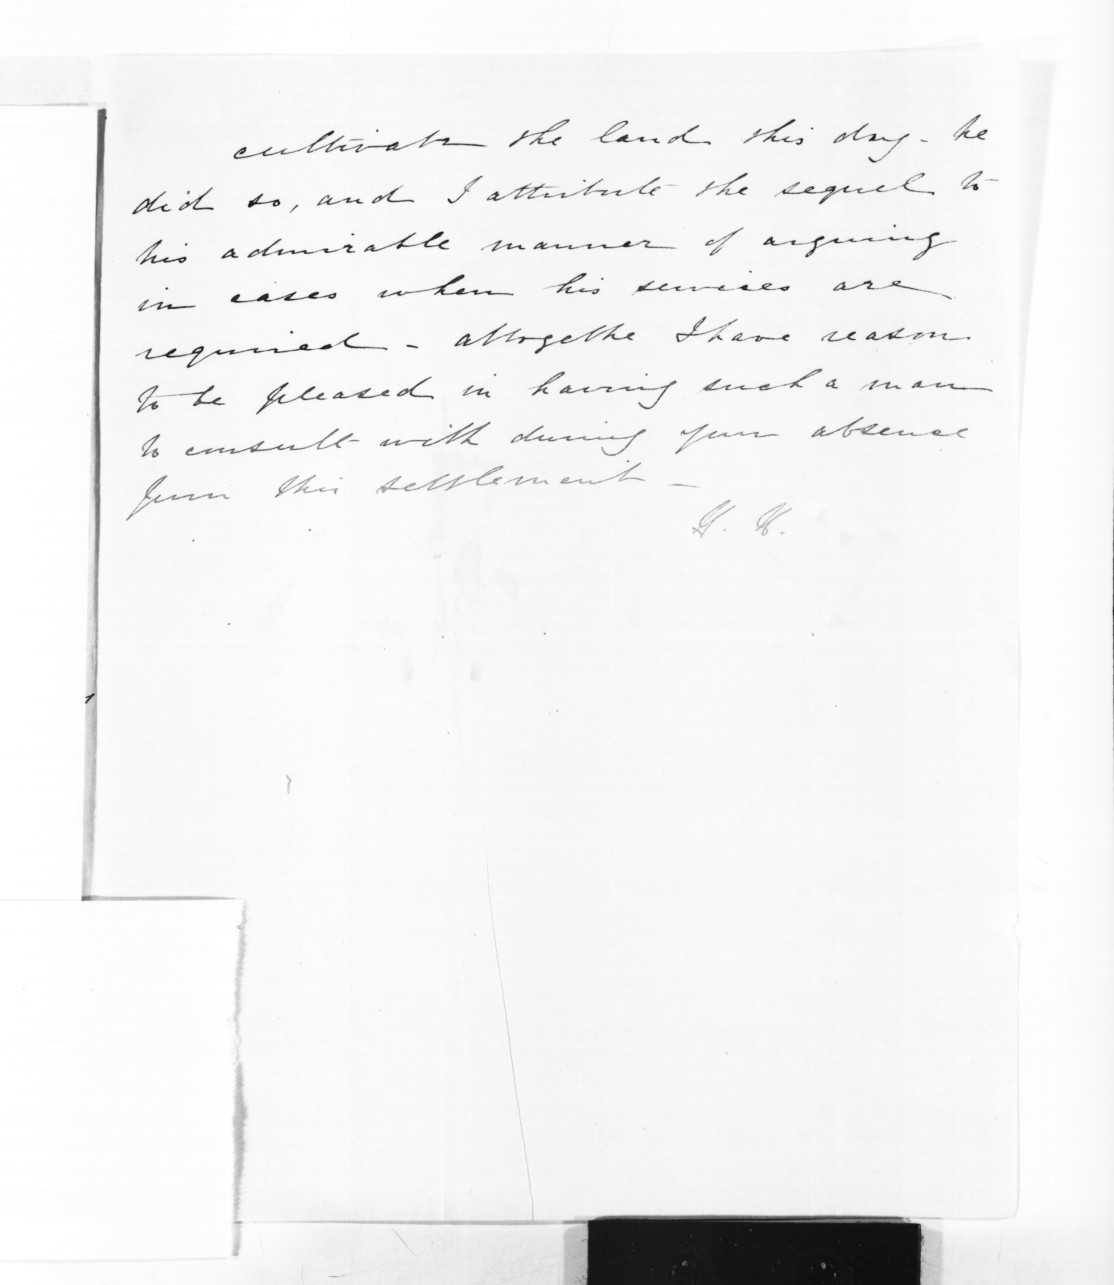 cultivate the land this day - he
did so, and I attribute the sequel to
his admirable manner of arguing
in cases when his services are
required - altogethe I have reason
to be pleased in having such a man
to consult with during your absence
from this settlement -
H. H.